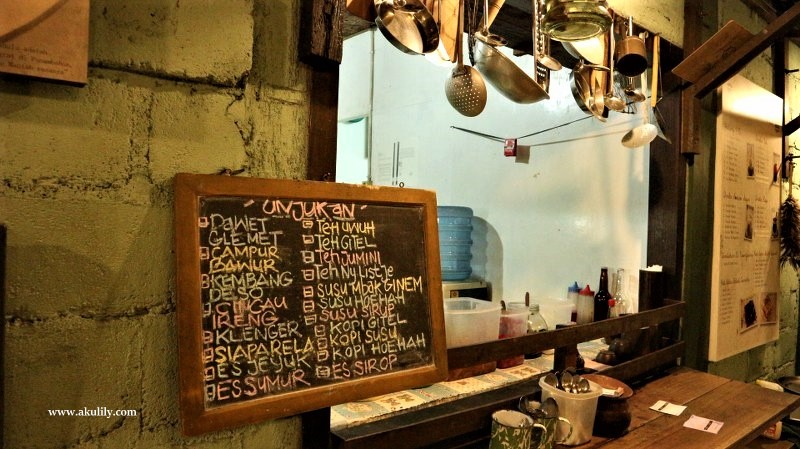 - UNJUKAN -
DAWET
GLEMET
CAMPUR
BAWUR
KEMBANG
DESO
IRENG
KLENGER
SIAPA RELA
ES JERUK
ES SUMUR
TEH UWUH
TEH GITEL
TEH JUMINI
TEH NY LISTJE
SUSU MBAK GINEM
SUSU HOEHAH
SUSU SIRUP
KOPI GITEL
KOPI SUSU
KOPI HOEHAH
ES SIROP
www.akulily.com